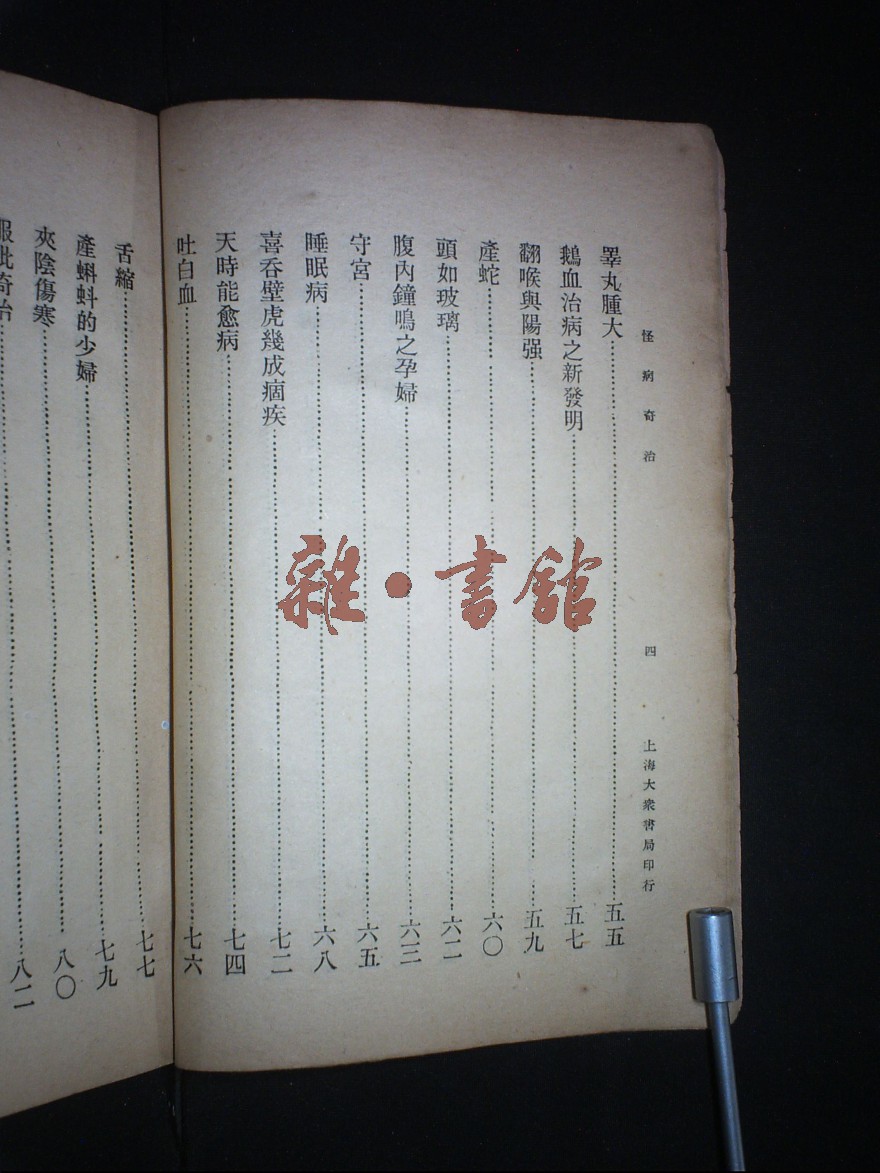 怪病奇治
四
上海大衆書局印行
睪丸腫大……五五
鵝血治病之新發明……五七
翻喉與陽强……五九
產蛇……六〇
頭如玻璃……六二
腹內鐘鳴之孕婦……六三
守宮……六五
睡眠病……六八
喜吞壁虎幾成痼疾……七二
天時能愈病……七四
吐白血……七六
舌縮……七七
產蝌蚪的少婦……七九
夾陰傷寒……八〇
服砒奇治……八二
雜·書館